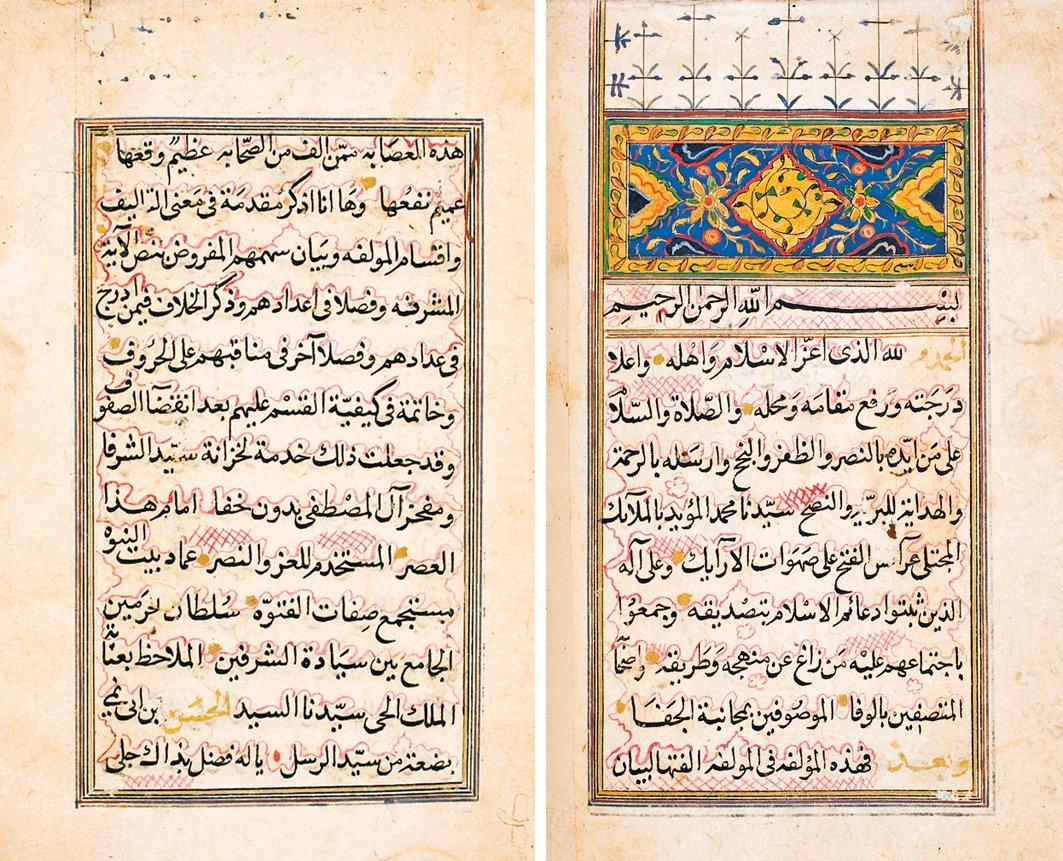 بسم الله الرحمن الرحيم
الحمد لله الذى اعز الاسلام واهله واعلا
درجته ورفع مقامه ومحله والصلاة والسلام
على من ايده بالنصر والظفر والنجح وارسله بالرحمة
والهداية للبرية والنصح سيدنا محمد المؤيد بالملائك
المجتلى عرائس الفتح على صهوات الارايك وعلى آله
الذين ثبتوا دعائم الاسلام بتصديقه وجمعوا
باجتماعهم عليه من زاغ عن منهجه وطريقه واصحابه
المتصفين بالوفا الموصوفين بمجانبة الجفا
وبعد فهذه المؤلفه فى المولفه الفتها لبيان
هذه العصابه ممن الف من الصحابه عظيم وقعها
عميم نفعها وها انا اذكر مقدمة فى معنى التاليف
واقسام المولفه وبيان سهمهم المفروض بنص الآية
المشرفه وفصلا فى اعدادهم وذكر الخلاف فيمن ادرج
فى عدادهم وفصلا آخر فى مناقبهم على الحروف
وخاتمة فى كيفية القسم عليهم بعد انقضا الصفوف
وقد جعلت ذلك خدمة لخزانة سيد الشرفا
ومفخر آل المصطفى بدون خفا امام هذا
العصر المستخدم للعز والنصر عماد بيت النبوه
مستجمع صفات الفتوه سلطان الحرمين
الجامع بين سيادة الشرفين الملاحظ بعناية
الملك الحى سيدنا السيد الحسن بن ابى نمى
بضعة من سيد الرسل ياله فضل بذاك جلى